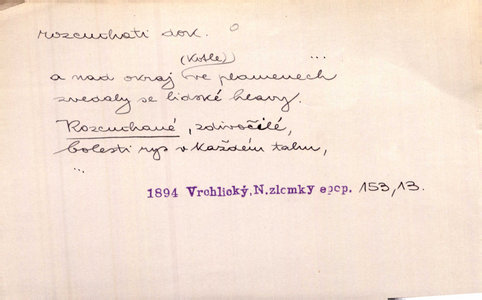 rozcuchati dok.
(Kotle) ...
a nad okraj ve plamenech
zvedaly se lidské hlavy.
Rozcuchané, zdivočilé,
bolesti rys v každém tahu,
...
1894 Vrchlický, N.zlomky epop. 153,13.